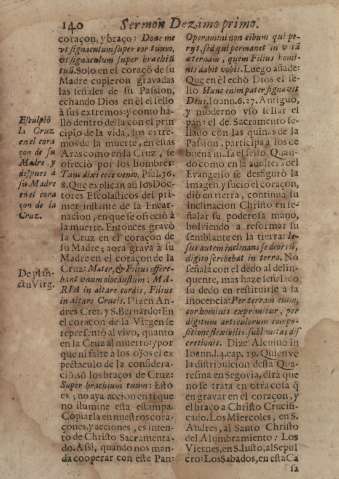 140 Sermon Dezimo primo.
coraçon, y braço: Pone me
vt signaculum super cor tuum,
vt signaculum super brachium
tuũ. Solo en el coraçõ de su
Madre cupieron gravadas
las señales de su Passion,
echando Dios en el el sello
à sus extremos: y como ha-
llò dentro de la con el prin-
cipio de la vida, los extre-
mos de la muerte, en estas
Aras como en la Cruz, se
ofreciò por los hombres
Tunc dixi ecce venio. Psal. 39.
8. Que explican assi los Doc-
tores Escolasticos del pri-
mer instante de la Encar-
nacion, en que se ofreciò à
la muerte. Entonces gravò
la Cruz en el coraçon de su
Madre; aora grava à su
Madre en el coraçon de la
Cruz: Mater, & Filius offere-
bant vnum olocaustum: MA-
RIA in altare cordis, Filius
in altare Crucis. Dizen An-
dres Cret. y S. Bernardo: En
el coraçon de la Virgen se
representò al vivo, quanto
en la Cruz al muerto: y por
que ni falte à los ojos el ex-
pectaculo de la considera-
ciõ, son los braços de Cruz:
Super brachium tuum: Esto
es; no aya accion en ti que
no ilumine esta estampa.
Copiarla en nuestros coraço-
nes, y acciones, es inten-
to de Christo Sacramenta-
do. Assi, quando nos man-
da cooperar con este Pan:
Esculpiò
la Cruz
en el cora
çon de su
Madre, y
despues à
su Madre
en el cora
çon de la
Cruz.
De plan-
ctu Virg.
Operamini non cibum qui pe-
rit, sed qui permanet in vitã
æternam, quem Filius homi-
nis dabit vobis. Luego añade:
Que en el echò Dios el se-
llo Hunc enim pater signavit
Deus. Ioann. 6. 27. Antiguo,
y moderno vso sellar el
pan: el de Sacramento se-
llado con las quinas de la
Passion, participa los ce
buena nida el sello. Quan-
do como en la adultera del
Evangelio se desigurò la
Imagen, y sucio el coraçon,
diò en tierra, continua su
inclinacion Christo en se-
ñalar su poderosa mano,
bolviendo a reformar su
semblante en la tierra: Ie-
sus autem inclinans se deorsũ,
digito scribebat in terra. No
señala con el dedo al delin-
quente, mas haze señas cõ
su dedo en restituirle à la
inocencia: Per terram enim,
cor hominis exprimitur, per
digitum
cretionis. Dize Alcuino in
Ioann. l. 4. cap. 19. Quien ve
la distribucion desta Qua-
resma en Segovia, dirà que
no se trata en otra cosa q̃
en gravar en el coraçon, y
el braço a Christo Crucifi-
cado. Los Miercoles, en S.
Andres, al Santo Christo
del Alumbramiento: Los
Viernes, en S. Iusto, al Sepul
cro: Los Sabados, en esta Ca
sa